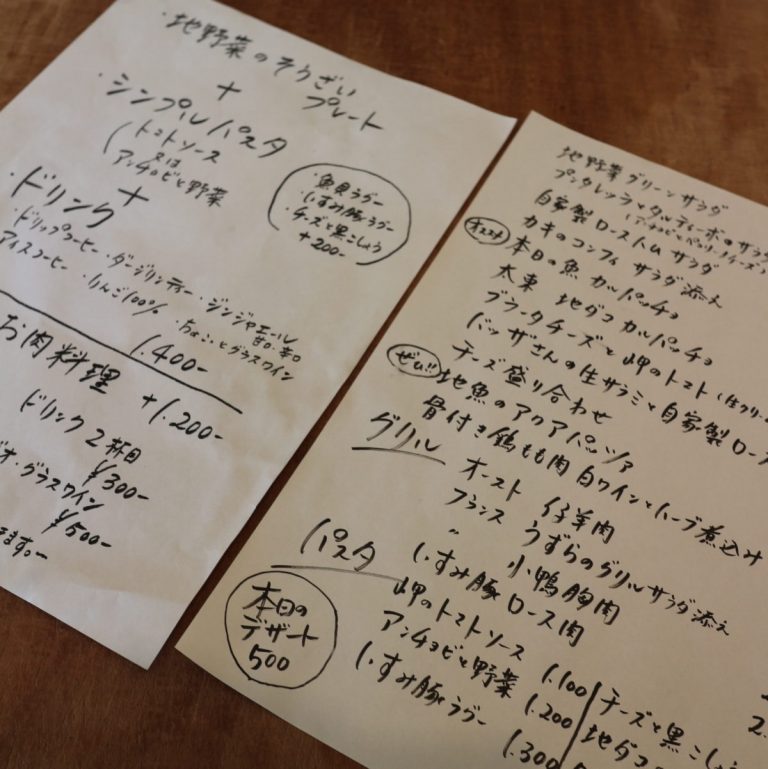 ・地野菜のそうざい
プレート
+
・シンプルパスタ
(トマトソース
又は
アンチョビと野菜
・魚貝ラグー
・いすみ豚ラグー
・チーズと黒こしょう
+200-
+
・ドリンク
・ドリップコーヒー・ダージリンティー・ジンジャエール
甘口・辛口
アイスコーヒー ・りんご100% ・ちょこっとグラスワイン
1.400-
お肉料理 +1.200-
ドリンク2杯目
¥300-
オ・グラスワイン
¥500-
ます。-
地野菜グリーンサラダ
プンタレッラとタルディーボのサラダ
(アンチョビとペコリーノチーズ)
自家製ロースハム サラダ
カキのコンフィ サラダ添え
オススメ 本日の魚 カルパッチョ
太東 地ダコ カルパッチョ
ブラータチーズと岬のトマト(生クリー
バッザさんの生サラミと自家製ロース
チーズ盛り合わせ
ぜひ!! 地魚のアクアパッツァ
骨付き鶏もも肉 白ワインとハーブ煮込み
グリル
オースト 仔羊肉
フランス うずらのグリル サラダ添え
〃 小鴨胸肉
いすみ豚 ロース肉
パスタ
岬のトマトソース 1.100
アンチョビと野菜 1.200
いすみ豚ラグー 1.300
チーズと黒こしょう
地ダコ
2.
本日の
デザート
500